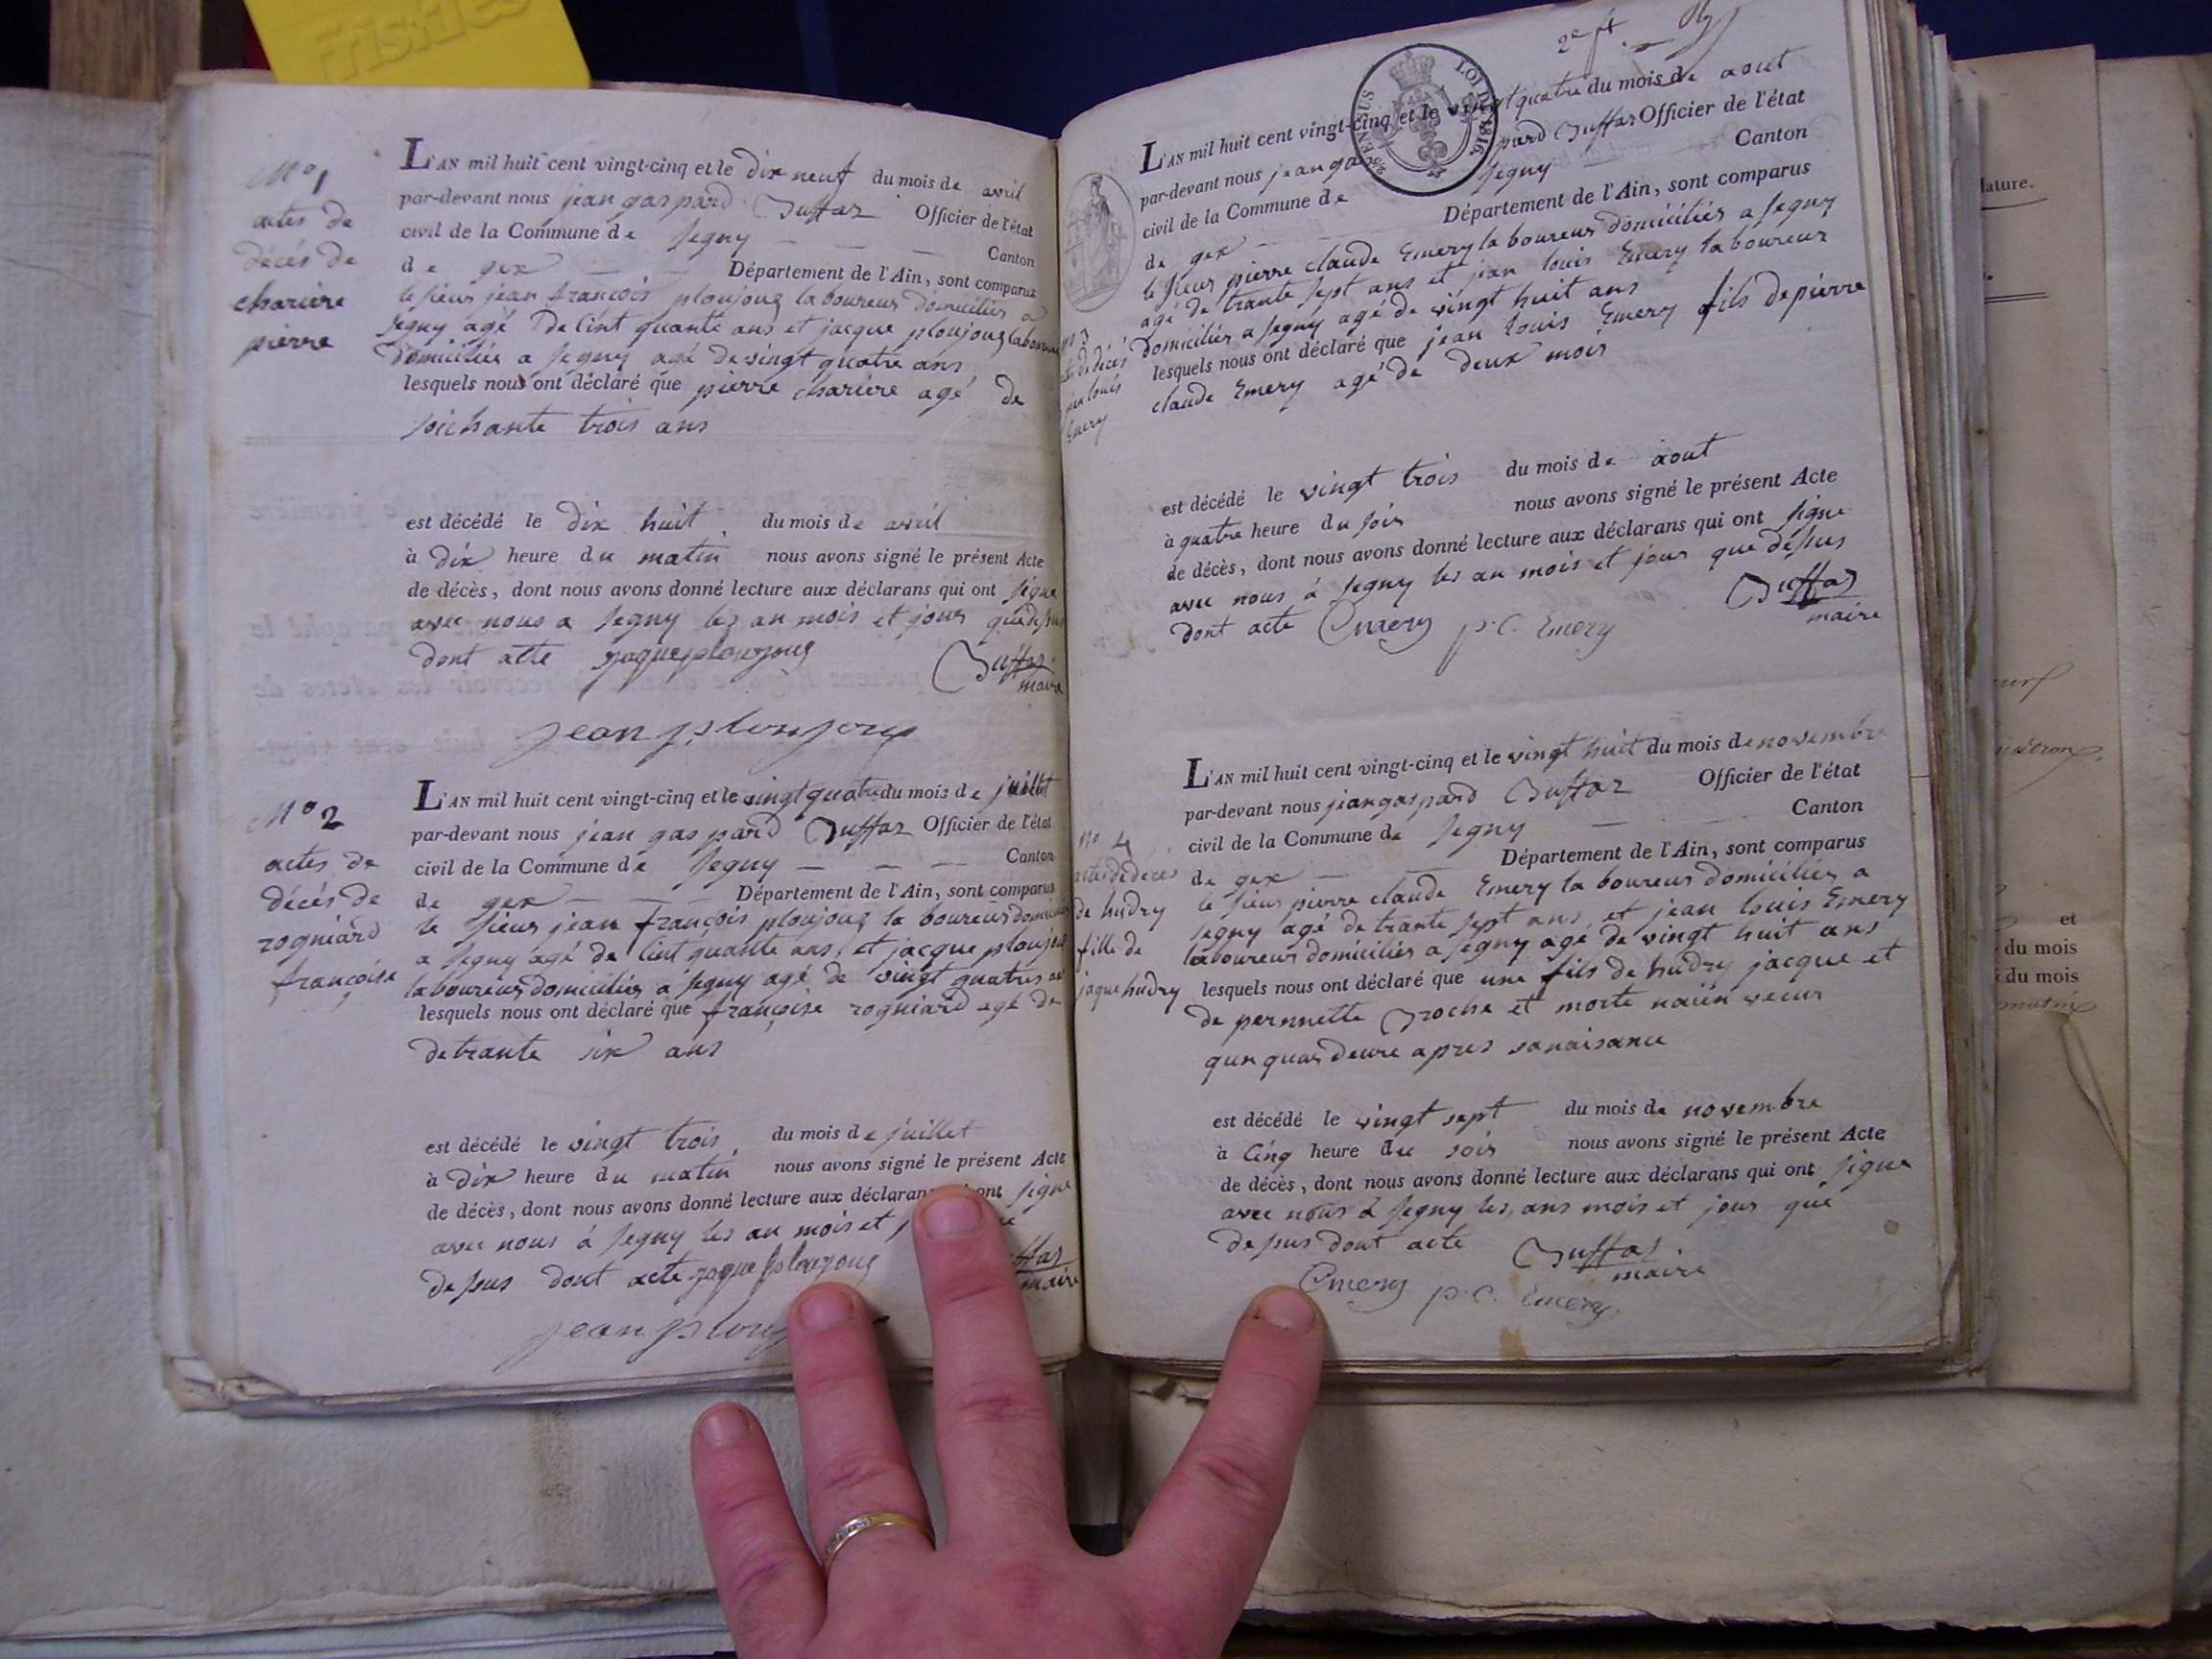 Friskies
N° 1
actes de
décés de
charière
pierre
L'AN mil huit cent vingt-cinq et le dix neuf du mois de avril
par-devant nous jean gaspard Buffaz Officier de l'état
civil de la Commune de segny — — — Canton
de gex — — Département de l'Ain, sont comparus
le sieur jean francois ploujoug laboureur domiciliés a
segny agé de cint quante ans et jacque ploujoug laboureur
domiciliés a segny agé de vingt quatre ans
lesquels nous ont déclaré que pierre charière agé de
soichante trois ans
est décédé le dix huit du mois de avril
à dix heure du matin nous avons signé le présent Acte
de décès, dont nous avons donné lecture aux déclarans qui ont signe
avec nous a segny les an mois et jour que desus
dont acte jaque ploujoug Buffaz
maire
jean ploujoug
N° 2
actes de
décés de
rogniard
françoise
L'AN mil huit cent vingt-cinq et le vingt quatre du mois de juillet
par-devant nous jean gaspard Buffaz Officier de l'état
civil de la Commune de segny — — — Canton
de gex — — — Département de l'Ain, sont comparus
le sieur jean françois ploujoug la boureur domiciliés
a segny agé de cint quante ans, et jacque ploujoug
laboureur domiciliés a segny agé de vingt quatre an
lesquels nous ont déclaré que françoise rogniard agé de
de trante six ans
est décédé le vingt trois du mois de juillet
à dix heure du matin nous avons signé le présent Acte
de décès, dont nous avons donné lecture aux déclarans ont signe
avec nous à segny les an mois et
desus dont acte jaque ploujoug
maire
jean
2e ft.
TIMBRE LOI DE 1816.
L'AN mil huit cent vingt-cinq et le vingt quatre du mois de aout
par-devant nous jean gaspard Buffaz Officier de l'état
civil de la Commune de segny — Canton
de gex — Département de l'Ain, sont comparus
le sieur pierre claude Emery la boureur domiciliés a segny
agé de trante sept ans et jean louis Emery laboureur
domiciliés a segny agé de vingt huit ans
lesquels nous ont déclaré que jean louis Emery fils de pierre
claude Emery agé de deux mois
N° 3
de décés
jean louis
Emery
est décédé le vingt trois du mois de aout
à quatre heure du soir nous avons signé le présent Acte
de décès, dont nous avons donné lecture aux déclarans qui ont signe
avec nous à segny les an mois et jour que desus
dont acte Emery p. C. Emery Buffaz
maire
N° 4
actes de deces
de hudry
fille de
jaque hudry
L'AN mil huit cent vingt-cinq et le vingt huit du mois de novembre
par-devant nous jean gaspard Buffaz Officier de l'état
civil de la Commune de segny — Canton
de gex — — Département de l'Ain, sont comparus
le sieur pierre claude Emery la boureur domiciliés a
segny agé de trante sept ans, et jean louis Emery
laboureur domiciliés a segny agé de vingt huit ans
lesquels nous ont déclaré que une fils de hudry jacque et
de pernnette Broche et morte naïën vecur
qun quar deure apres sanaisance
est décédé le vingt sept du mois de novembre
à cinq heure du soir nous avons signé le présent Acte
de décès, dont nous avons donné lecture aux déclarans qui ont signe
avec nous à segny les ans mois et jour que
desus dont acte Buffaz
maire
Emery p. C. Emery
et
du mois
du mois